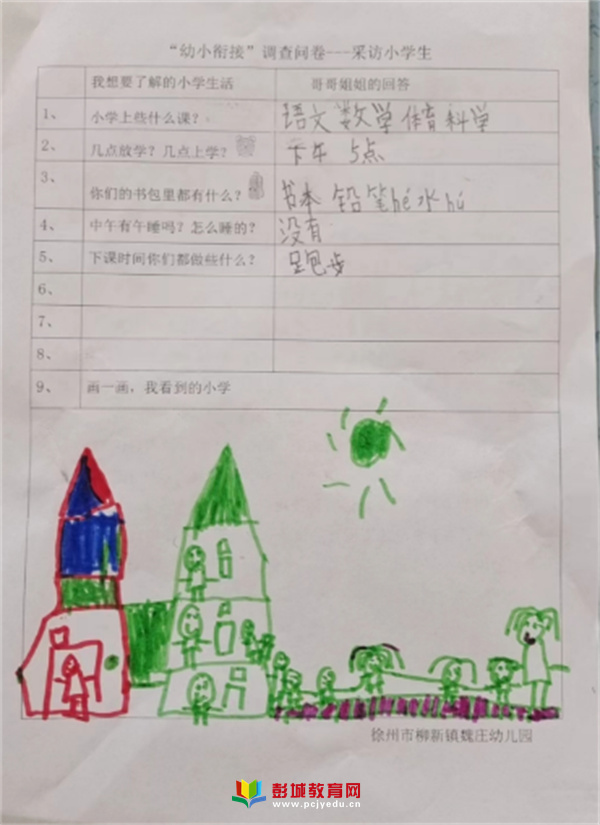 “幼小衔接”调查问卷---采访小学生
我想要了解的小学生活 哥哥姐姐的回答
1、 小学上些什么课？ 语文 数学 体育 科学
2、 几点放学？几点上学？ 下午 5点
3、 你们的书包里都有什么？ 书本 铅笔hé水hú
4、 中午有午睡吗？怎么睡的？ 没有
5、 下课时间你们都做些什么？ 跑步
6、
7、
8、
9、 画一画，我看到的小学
徐州市柳新镇魏庄幼儿园
彭城教育网
www.pcjyedu.cn